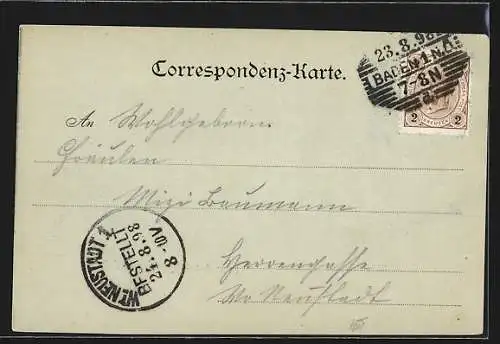 23.8.98
BADEN 1. N.Ö.
7-8N
2 2
Correspondenz-Karte.
An Wohlgeboren
Fräulein
Mizi Baumann
Herrengasse
Wr Neustadt
WR. NEUSTADT 1
BESTELLT
24.8.98
8-10V